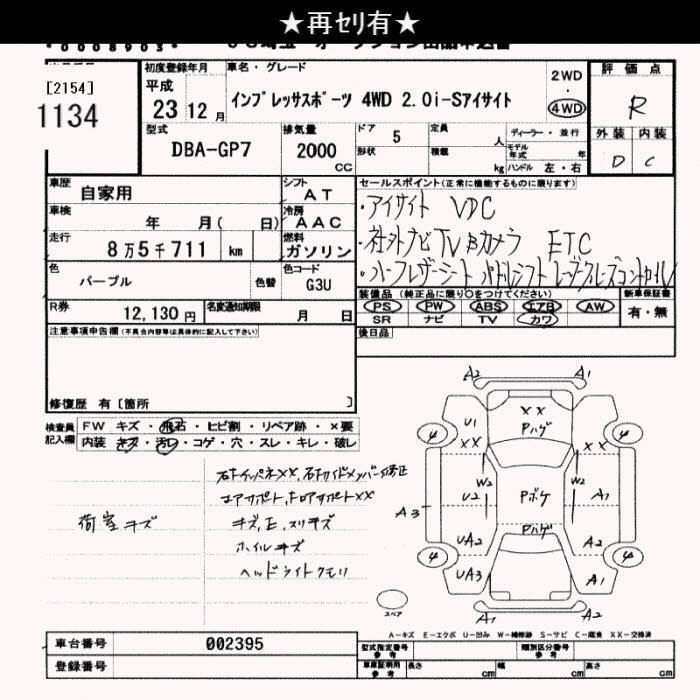 ★再ｾﾘ有★
[2154]
1134
初度登録年月
平成
23 12 月
車名・グレード
インプレッサスポーツ 4WD 2.0i-Sアイサイト
2WD
・
4WD
評価点
R
外装 内装
D C
型式
DBA-GP7
排気量
2000
CC
ドア 5
形状
定員 人
積載 kg
ディーラー・並行
モデル年式 年
ハンドル 左・右
車歴 自家用
シフト AT
車検 年 月( 日)
冷房 AAC
走行 8万5千711 km
燃料 ガソリン
色 パープル 色替
色コード G3U
R券 12,130 円
名変通知期限 月 日
セールスポイント(正常に機能するものに限ります)
・アイサイト VDC
・社外ナビTV Bカメラ ETC
・ハーフレザーシート パドルシフト レーダークルーズコントロール
装備品(純正品に限り○をつけてください)
PS PW ABS エアB AW
SR ナビ TV カワ
新車保証書
有・無
後日品
注意事項申告欄(不具合内容等は具体的に記入して下さい)
修復歴 有〔箇所 〕
検査員記入欄
FW キズ・飛石・ヒビ割・リペア跡・×要
内装 キズ・汚レ・コゲ・穴・スレ・キレ・破レ
荷室キズ
右キインパネXX、右キサイドメンバー修正
コアサポート、キロアサポートXX
キズ、E、スリキズ
ホイルキズ
ヘッドライトクモリ
A2 A1
U1 XX XX
Pハゲ
4 4
W2 W2
A3 U2 Pボケ A1
Pハゲ
UA2 A2
4 4
UA3 A1
A1 A2
スペア
A-キズ E-エクボ U-凹み W-補修跡 S-サビ C-腐食 XX-交換済
車台番号 002395
登録番号
型式指定番号 参考
類別区分番号 参考
車庫証明用 参考
長さ cm 幅 cm 高さ cm